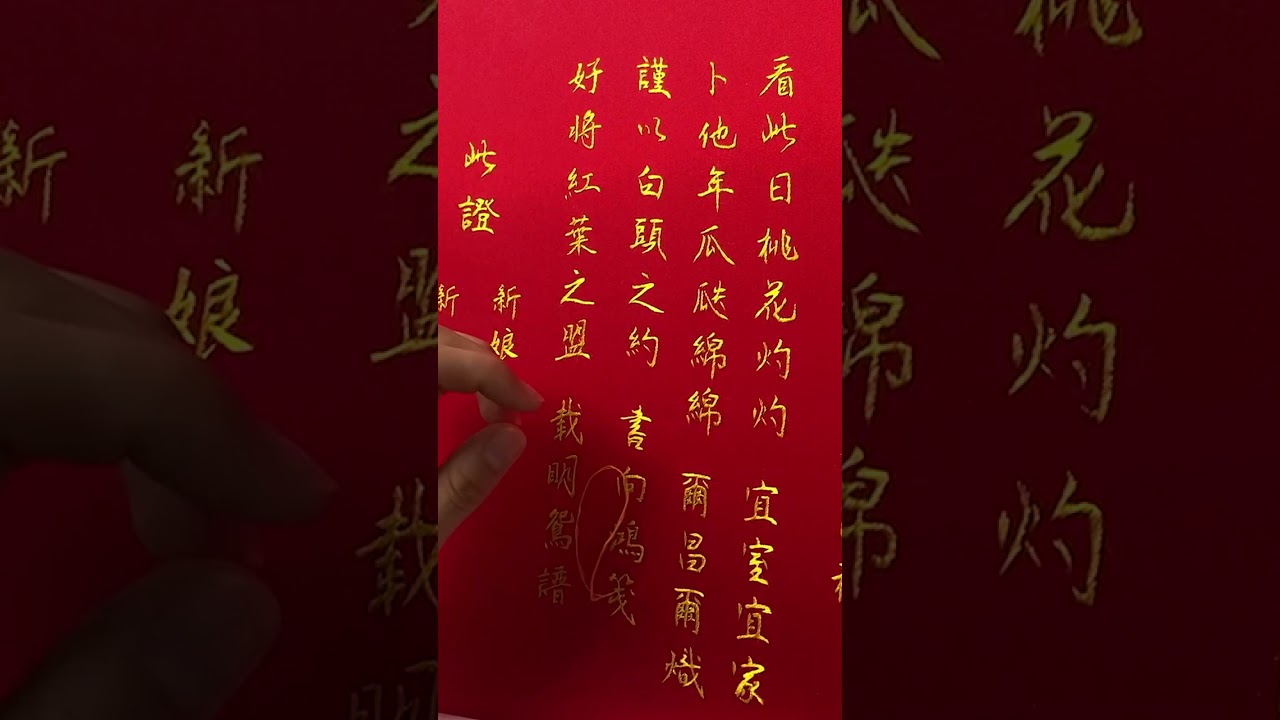 看此日桃花灼灼 宜室宜家
卜他年瓜瓞綿綿 爾昌爾熾
謹以白頭之約 書向鴻箋
好將紅葉之盟 載明鴛譜
此證
新娘
新